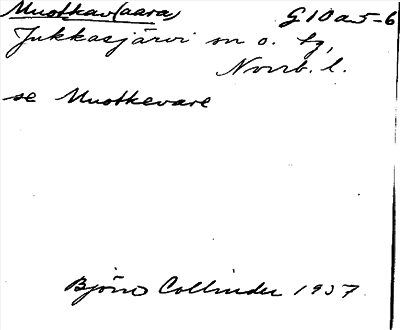 Muotkav(aara) G10a5-6
Jukkasjärvi sn o. tg,
Norrb. l.
se Muotkevare
Björn Collinder 1937